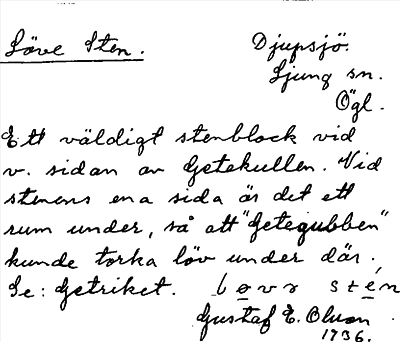 Löve Sten.
Djupsjö.
Ljung sn.
Ögl.
Ett väldigt stenblock vid
v. sidan av Getekullen. Vid
stenens ena sida är det ett
rum under, så att "Getegubben"
kunde torka löv under där.
Se: Getriket. løvə stén
Gustaf E. Olson
1936.